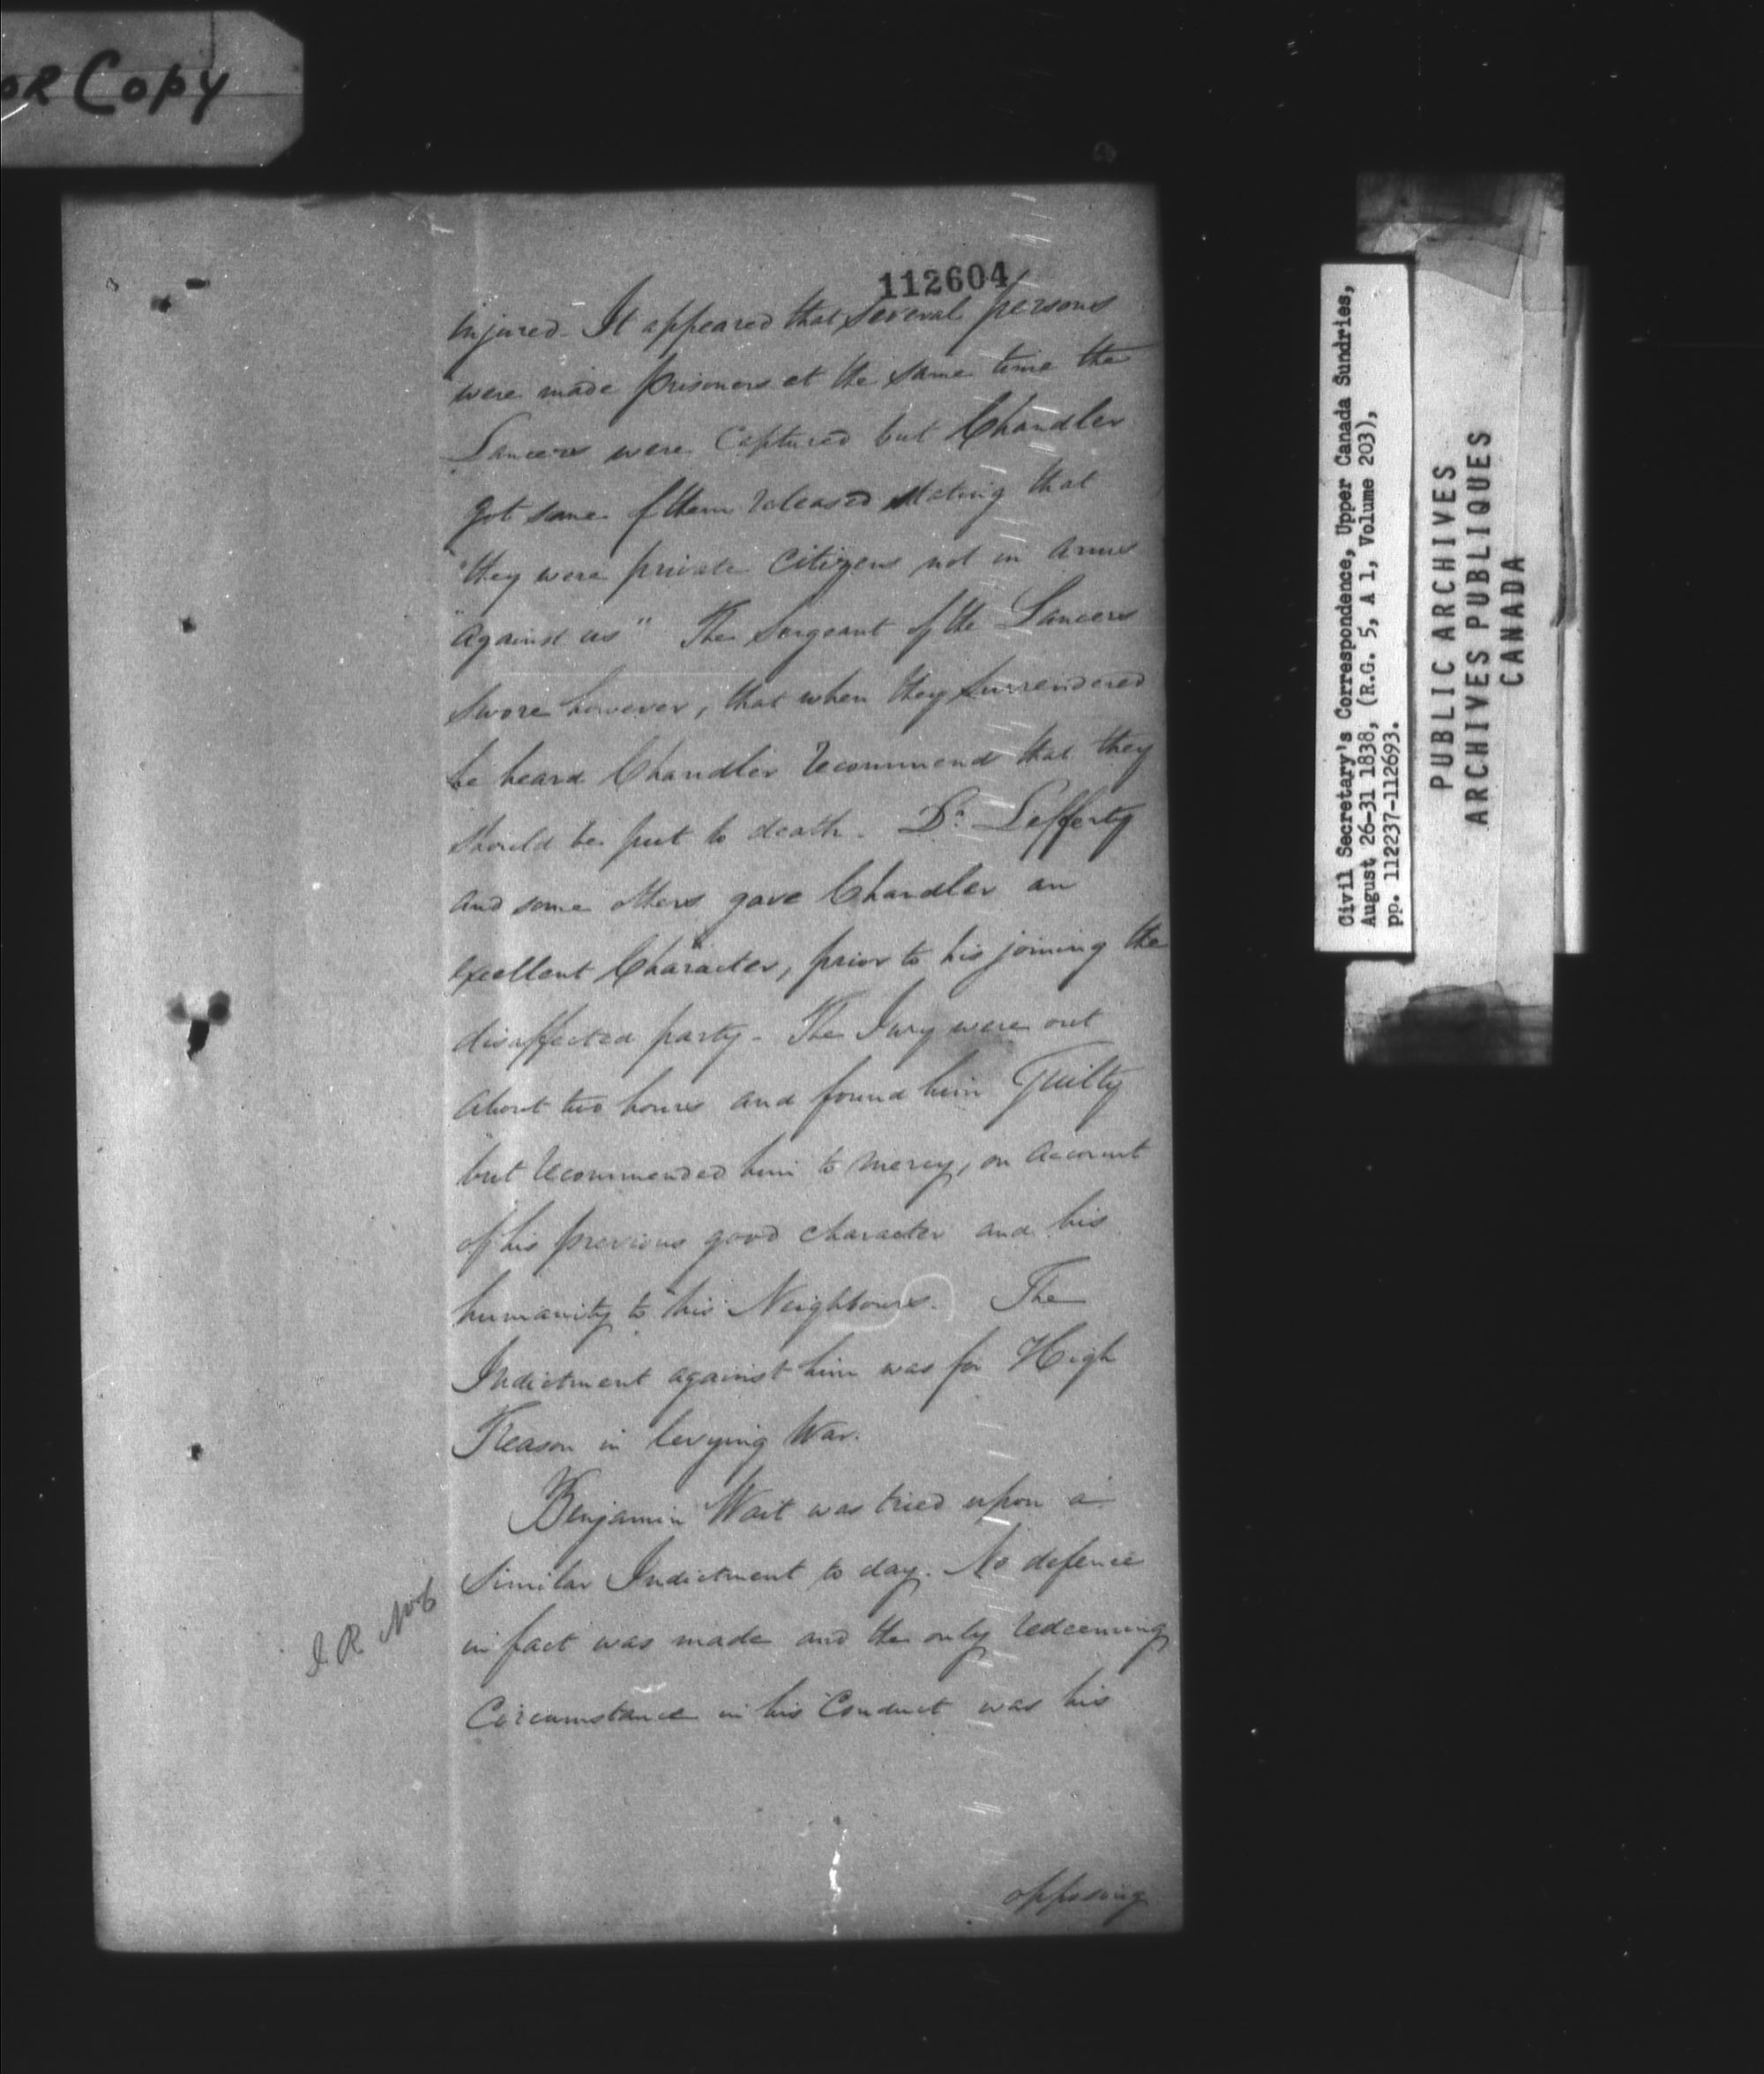 OR Copy
112604
injured - It appeared that several persons
were made prisoners at the same time the
Lancers were Captured but Chandler
got some of them released stating that
"they were private Citizens not in arms
"against us" The Sergeant of the Lancers
swore however, that when they surrendered
he heard Chandler recommend that they
should be put to death. Dr. Lefferty
and some others gave Chandler an
excellent Character, prior to his joining the
disaffected party - The Jury were out
about two hours and found him Guilty
but recommended him to mercy, on account
of his previous good character and his
humanity to his Neighbours. The
Indictment against him was for High
Treason in levying War.
Benjamin Wait was tried upon a
Similar Indictment to day. No defence
in fact was made and the only redeeming
Circumstance in his Conduct was his
opposing
Civil Secretary's Correspondence, Upper Canada Sundries,
August 26-31 1838, (R.G. 5, A 1, Volume 203),
pp. 112237-112693.
PUBLIC ARCHIVES
ARCHIVES PUBLIQUES
CANADA